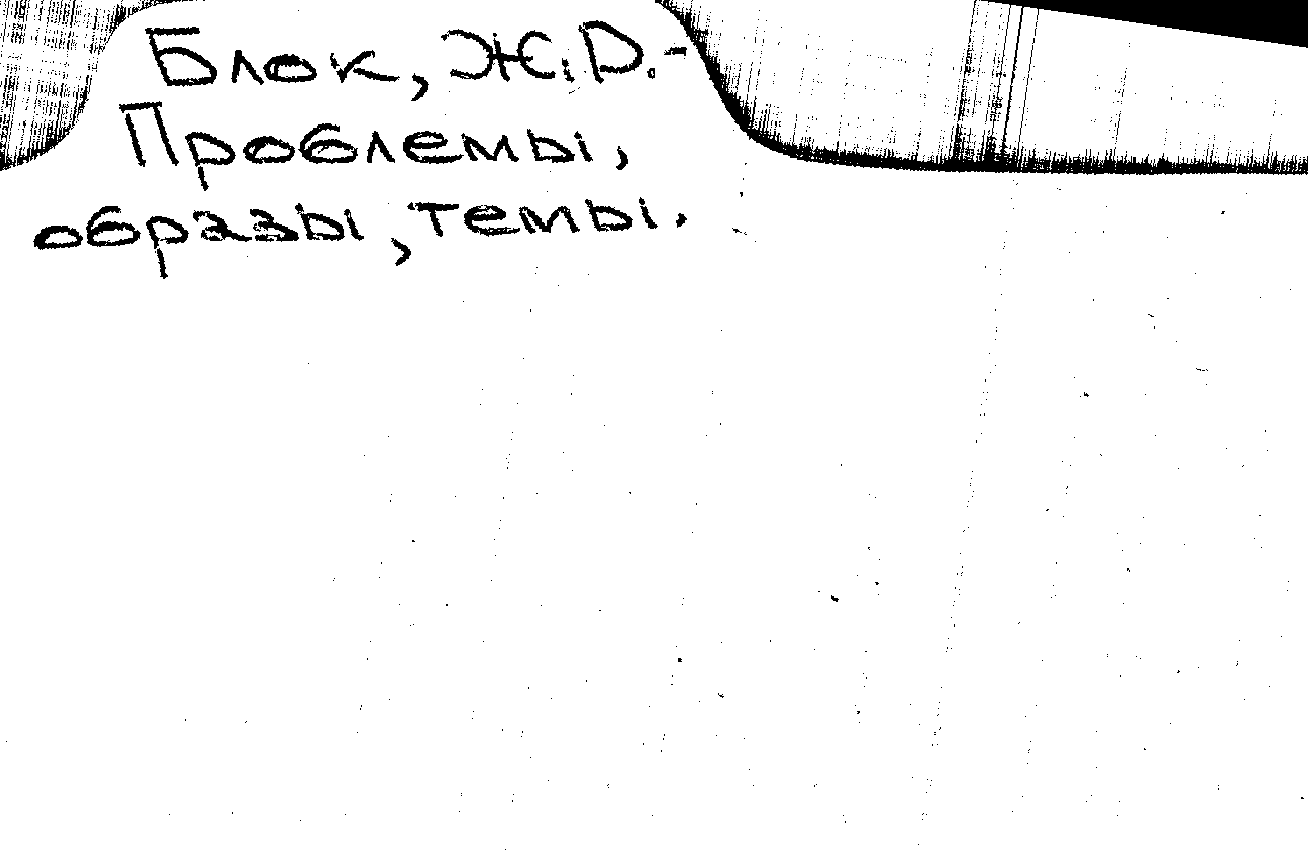 Блок, Ж.Р.-
Проблемы,
образы, темы.